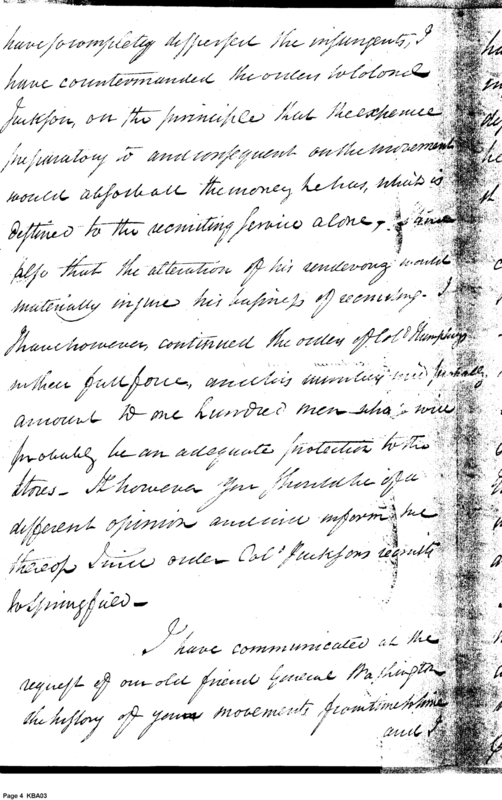 have so completely dispersed the insurgents, I
have countermanded the orders to Colonel
Jackson, on the principle that the expence
preparatory to and consequent on the movement
would absorb all the money he has, which is
destined to the recruiting service alone, and
also that the alteration of his rendevouz would
materially injure his business of recruiting. I
have however, continued the orders of Colo Humphrys
in their full force, and his numbers will probably
amount to one hundred men who will
probably be an adequate protection to the
stores – If however you should be of a
different opinion and will inform me
thereof I will order Colo Jacksons recruits
to Springfield –
I have communicated at the
request of our old friend General Washington
the history of your movements from time to time
and I
Page 4 KBA03